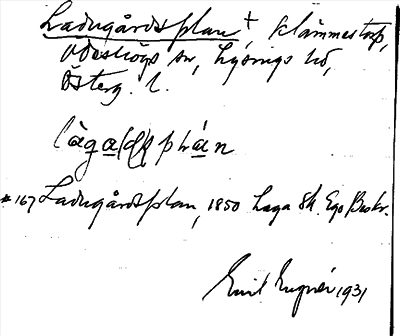 Ladugårdsplan +, Klämmestorp,
Ödeshögs sn, Lysings hd,
Österg. l.
làga(d)splán
* 167 Ladugårdsplan, 1850 Laga Sk. Ego Beskr.
Emil 1931